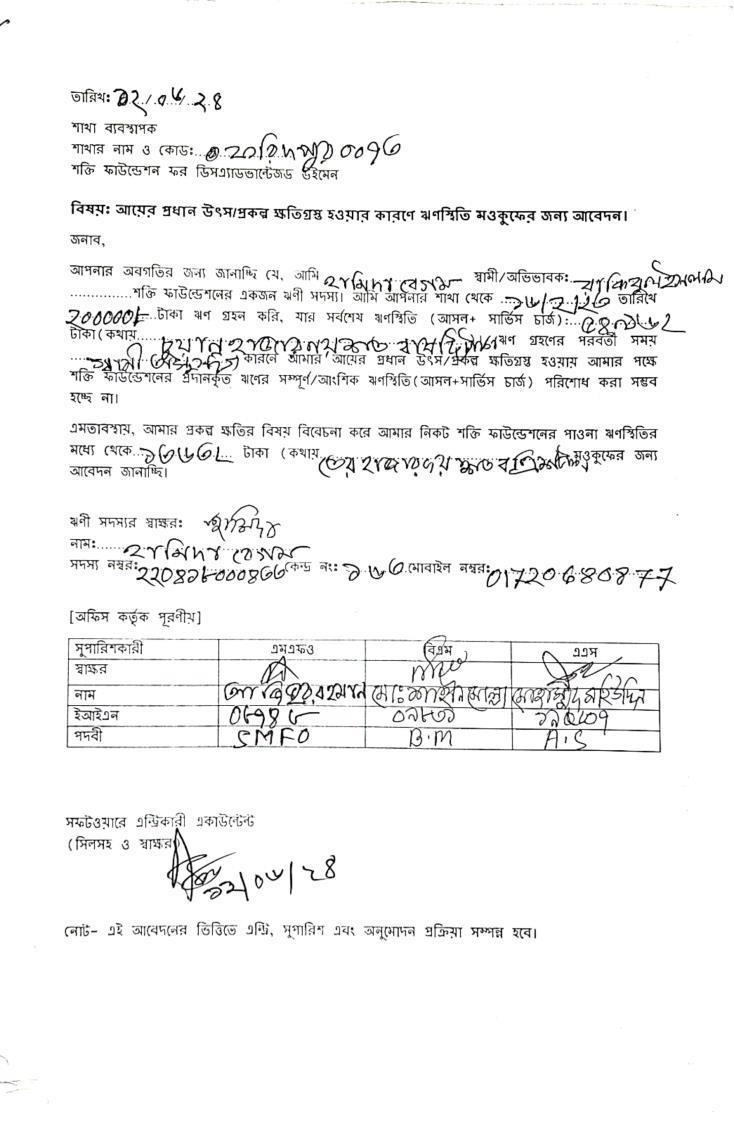 তারিখ: ১২/০৬/২৪
শাখা ব্যবস্থাপক
শাখার নাম ও কোড: ফরিদপুর ০০৭৬
শক্তি ফাউন্ডেশন ফর ডিসএ্যাডভান্টেজড উইমেন
বিষয়: আয়ের প্রধান উৎস/প্রকল্প ক্ষতিগ্রস্থ হওয়ার কারণে ঋণস্থিতি মওকুফের জন্য আবেদন।
জনাব,
আপনার অবগতির জন্য জানাচ্ছি যে, আমি হামিদা বেগম স্বামী/অভিভাবক:
..............শক্তি ফাউন্ডেশনের একজন ঋণী সদস্য। আমি আপনার শাখা থেকে তারিখে
200000/-টাকা ঋণ গ্রহন করি, যার সর্বশেষ ঋণস্থিতি (আসল+ সার্ভিস চার্জ):
টাকা (কথায় ঋণ গ্রহণের পরবর্তী সময়
স্বামী কারনে আমার আয়ের প্রধান উৎস/প্রকল্প ক্ষতিগ্রস্থ হওয়ায় আমার পক্ষে
শক্তি ফাউন্ডেশনের প্রদানকৃত ঋণের সম্পূর্ণ/আংশিক ঋণস্থিতি(আসল+সার্ভিস চার্জ) পরিশোধ করা সম্ভব
হচ্ছে না।
এমতাবস্থায়, আমার প্রকল্প ক্ষতির বিষয় বিবেচনা করে আমার নিকট শক্তি ফাউন্ডেশনের পাওনা ঋণস্থিতির
মধ্যে থেকে টাকা (কথায় তের হাজার মওকুফের জন্য
আবেদন জানাচ্ছি।
ঋণী সদস্যর স্বাক্ষর: হামিদা
নাম: হামিদা বেগম
সদস্য নম্বর: কেন্দ্র নং: মোবাইল নম্বর: 01720680877
[অফিস কর্তৃক পূরণীয়]
সুপারিশকারী এমএফও বিএম এএস
স্বাক্ষর
নাম
ইআইএন
পদবী SMFO B.M A.S
সফটওয়ারে এন্ট্রিকারী একাউন্টেন্ট
(সিলসহ ও স্বাক্ষর)
১২/০৬/২৪
নোট- এই আবেদনের ভিত্তিতে এন্ট্রি, সুপারিশ এবং অনুমোদন প্রক্রিয়া সম্পন্ন হবে।